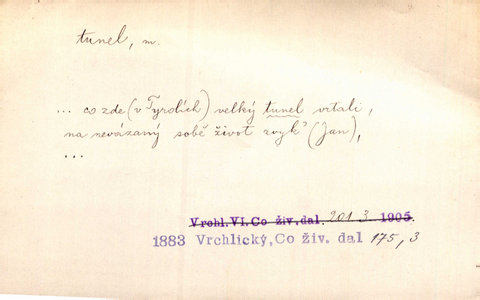 tunel, m.
... co zde (v Tyrolích) velký tunel vrtali,
na nevázaný sobě život zvyk' (Jan),
...
Vrchl. VI. Co živ. dal. 201. 3. 1905
1883 Vrchlický, Co živ. dal 175, 3